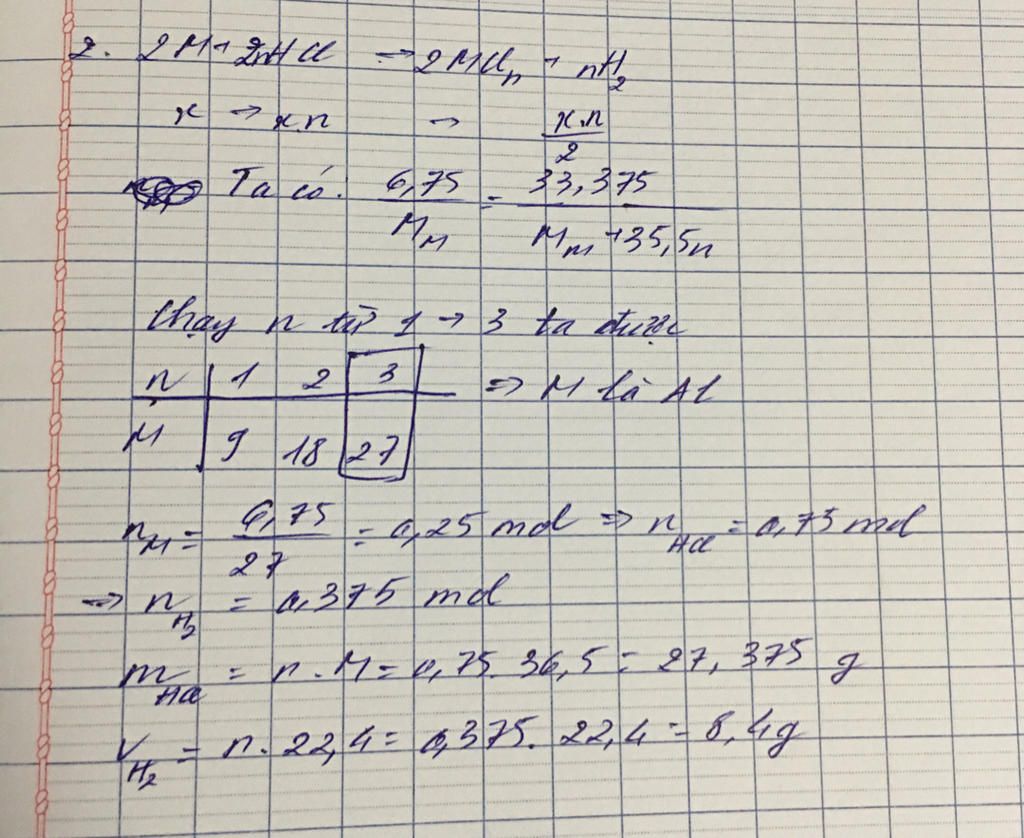 2. 2M + 2nHCl → 2MCln + nH2
x → x.n → x.n/2
Ta có: 6,75/MM = 33,375/(Mm + 35,5n)
Chạy n từ 1 → 3 ta được
n | 1 2 3 => M là Al
M | 9 18 27
nM = 6,75/27 = 0,25 mol => nHCl = 0,75 mol
=> nH2 = 0,375 mol
mHCl = n.M = 0,75.36,5 = 27,375 g
VH2 = n.22,4 = 0,375.22,4 = 8,4g